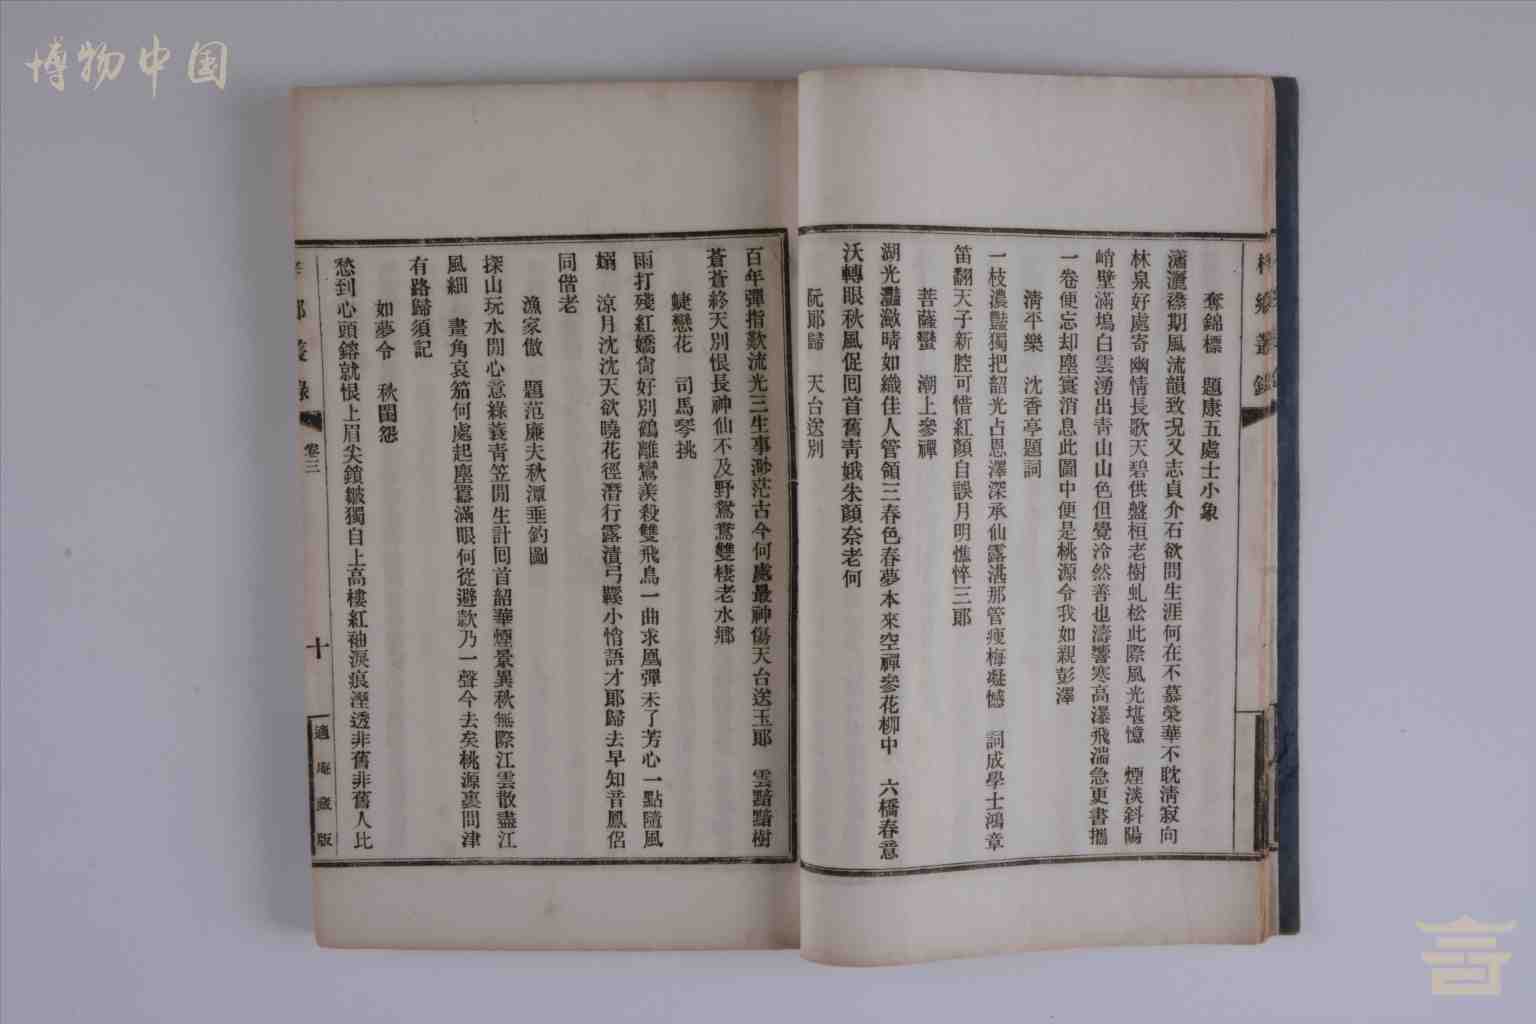 博物中国
奪錦標　題康五處士小象
瀟灑襟期風流韻致況又志貞介石欲問生涯何在不慕榮華不耽清寂向
林泉好處寄幽情長歌天碧供盤桓老樹虬松此際風光堪憶　煙淡斜陽
峭壁滿塢白雲湧出青山山色但覺泠然善也濤響寒高瀑飛湍急更書攜
一卷便忘却塵寰消息此圖中便是桃源令我如親彭澤
清平樂　沈香亭題詞
一枝濃豔獨把韶光占恩澤深承仙露湛那管瘦梅凝憾　詞成學士鴻章
笛翻天子新腔可惜紅顏自誤月明憔悴三郞
菩薩蠻　潮上參禪
湖光灩瀲晴如織佳人管領三春色春夢本來空禪參花柳中　六橋春意
沃轉眼秋風促回首舊靑娥朱顏奈老何
阮郞歸　天台送別
百年彈指歎流光三生事渺茫古今何處最神傷天台送玉郞　雲黯黯樹
蒼蒼終天別恨長神仙不及野鴛鴦雙棲老水鄉
蜨戀花　司馬琴挑
雨打殘紅嬌尙好別鶴離鸞羨殺雙飛鳥一曲求凰彈未了芳心一點隨風
嫋　涼月沈沈天欲曉花徑潛行露漬弓鞵小悄語才郞歸去早知音鳳侶
同偕老
漁家傲　題范廉夫秋潭垂釣圖
探山玩水閒心意綠蓑青笠閒生計回首韶華煙景異秋無際江雲散盡江
風細　畫角哀笳何處起塵囂滿眼何從避款乃一聲今去矣桃源裏問津
有路歸須記
如夢令　秋閨怨
愁到心頭鎔就恨上眉尖鎖皺獨自上高樓紅袖淚痕溼透非舊非舊人比
卷三
十
適庵藏版